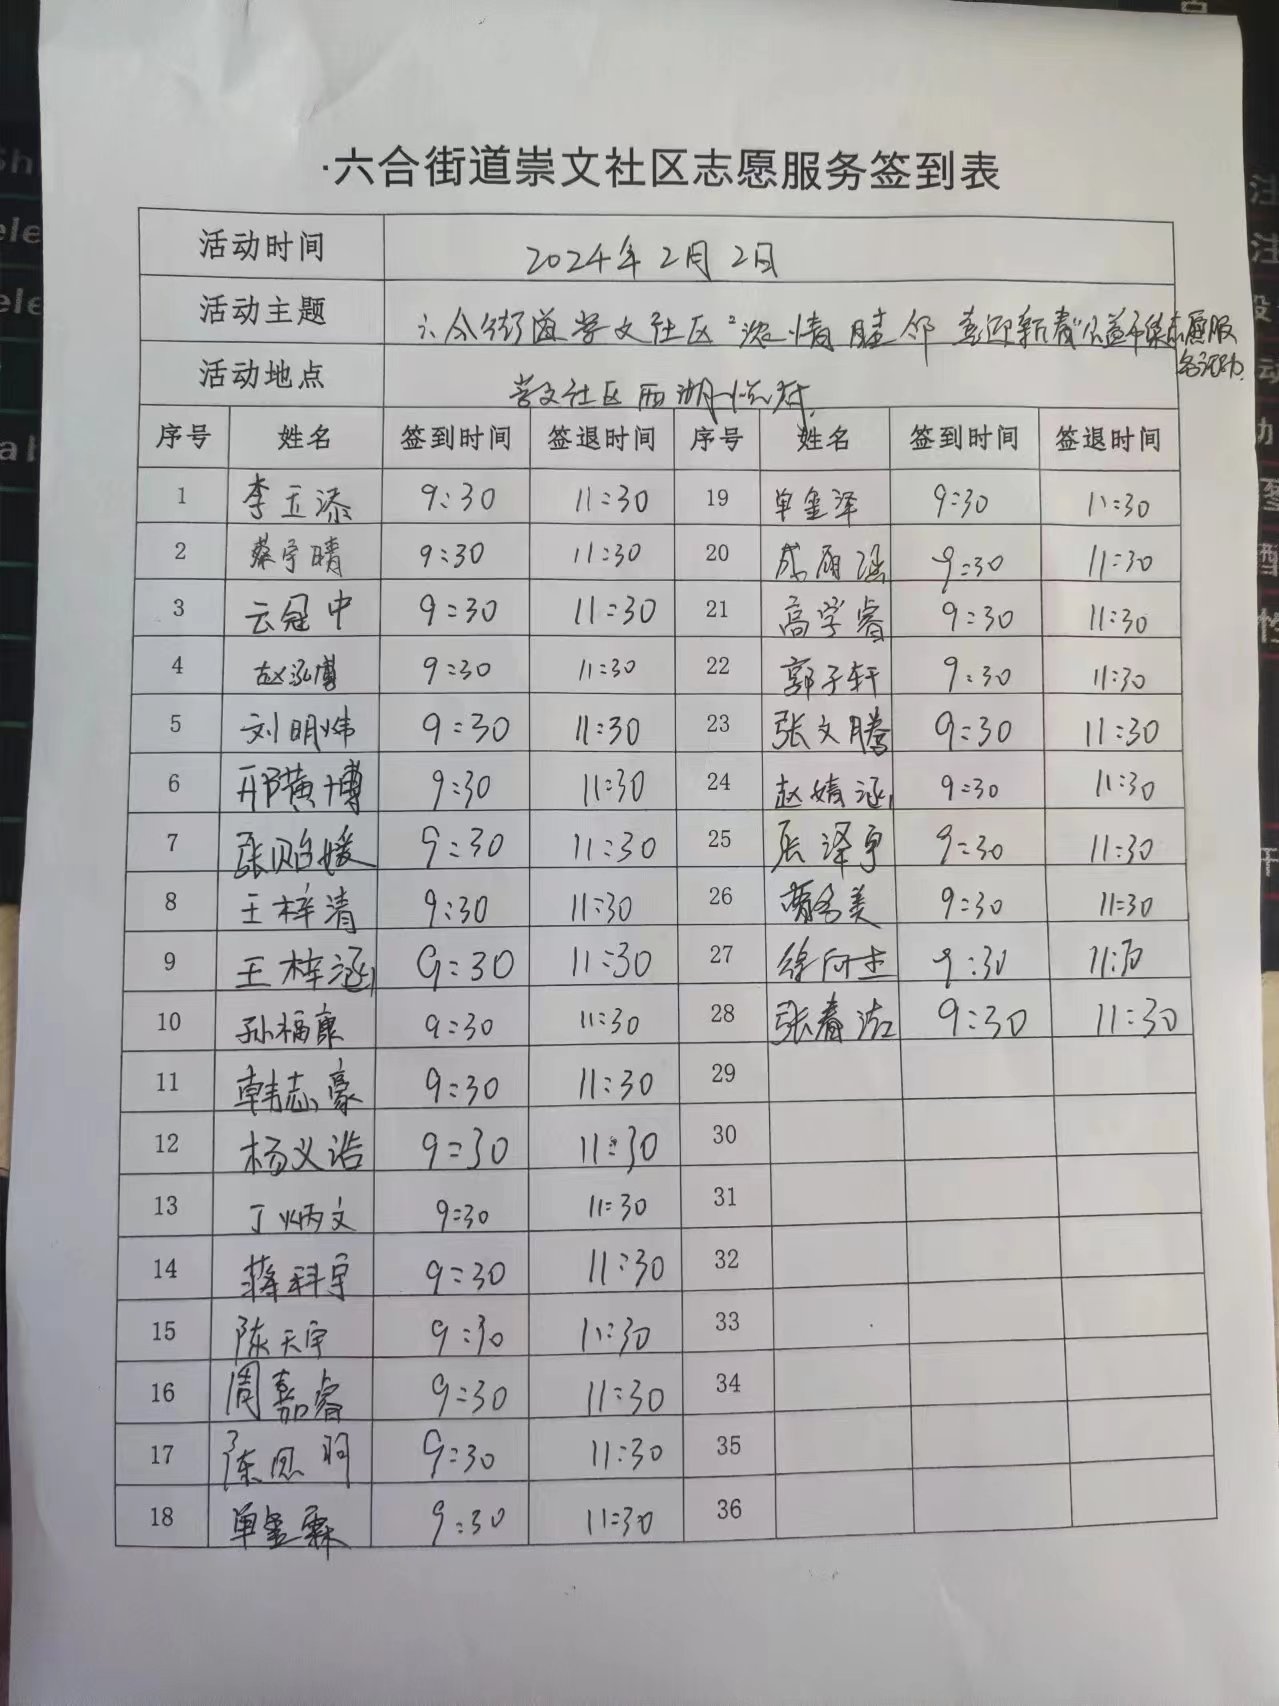 ·六合街道崇文社区志愿服务签到表
活动时间 2024年2月2日
活动主题 六合街道崇文社区"浓情睦邻 喜迎新春"公益年集志愿服务活动.
活动地点 崇文社区西湖悦府.
序号 姓名 签到时间 签退时间 序号 姓名 签到时间 签退时间
1 李玉添 9:30 11:30 19 单金泽 9:30 11:30
2 蔡宇晴 9:30 11:30 20 雨涵 9:30 11:30
3 云冠中 9:30 11:30 21 高学睿 9:30 11:30
4 赵泓博 9:30 11:30 22 郭子轩 9:30 11:30
5 刘明炜 9:30 11:30 23 张文腾 9:30 11:30
6 邢黄博 9:30 11:30 24 赵婧涵 9:30 11:30
7 张贻媛 9:30 11:30 25 张泽宇 9:30 11:30
8 王梓清 9:30 11:30 26 美 9:30 11:30
9 王梓涵 9:30 11:30 27 徐 9:30 11:30
10 孙福康 9:30 11:30 28 张春洁 9:30 11:30
11 韩志豪 9:30 11:30 29
12 杨义浩 9:30 11:30 30
13 丁炳文 9:30 11:30 31
14 蒋科宇 9:30 11:30 32
15 陈天宇 9:30 11:30 33
16 周嘉睿 9:30 11:30 34
17 陈思玥 9:30 11:30 35
18 单金霖 9:30 11:30 36